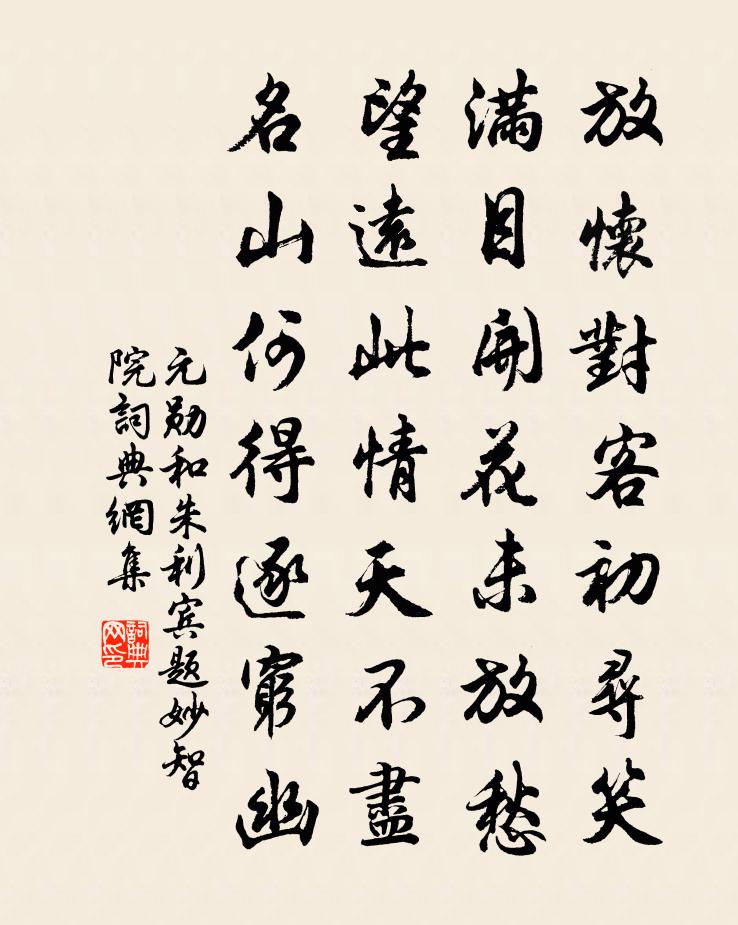 放懷對客初尋笑
滿目開花未放愁
望遠此情天不盡
名山何得逐窮幽
元勋和朱利宾题妙智
院詞典網集
詞典网印